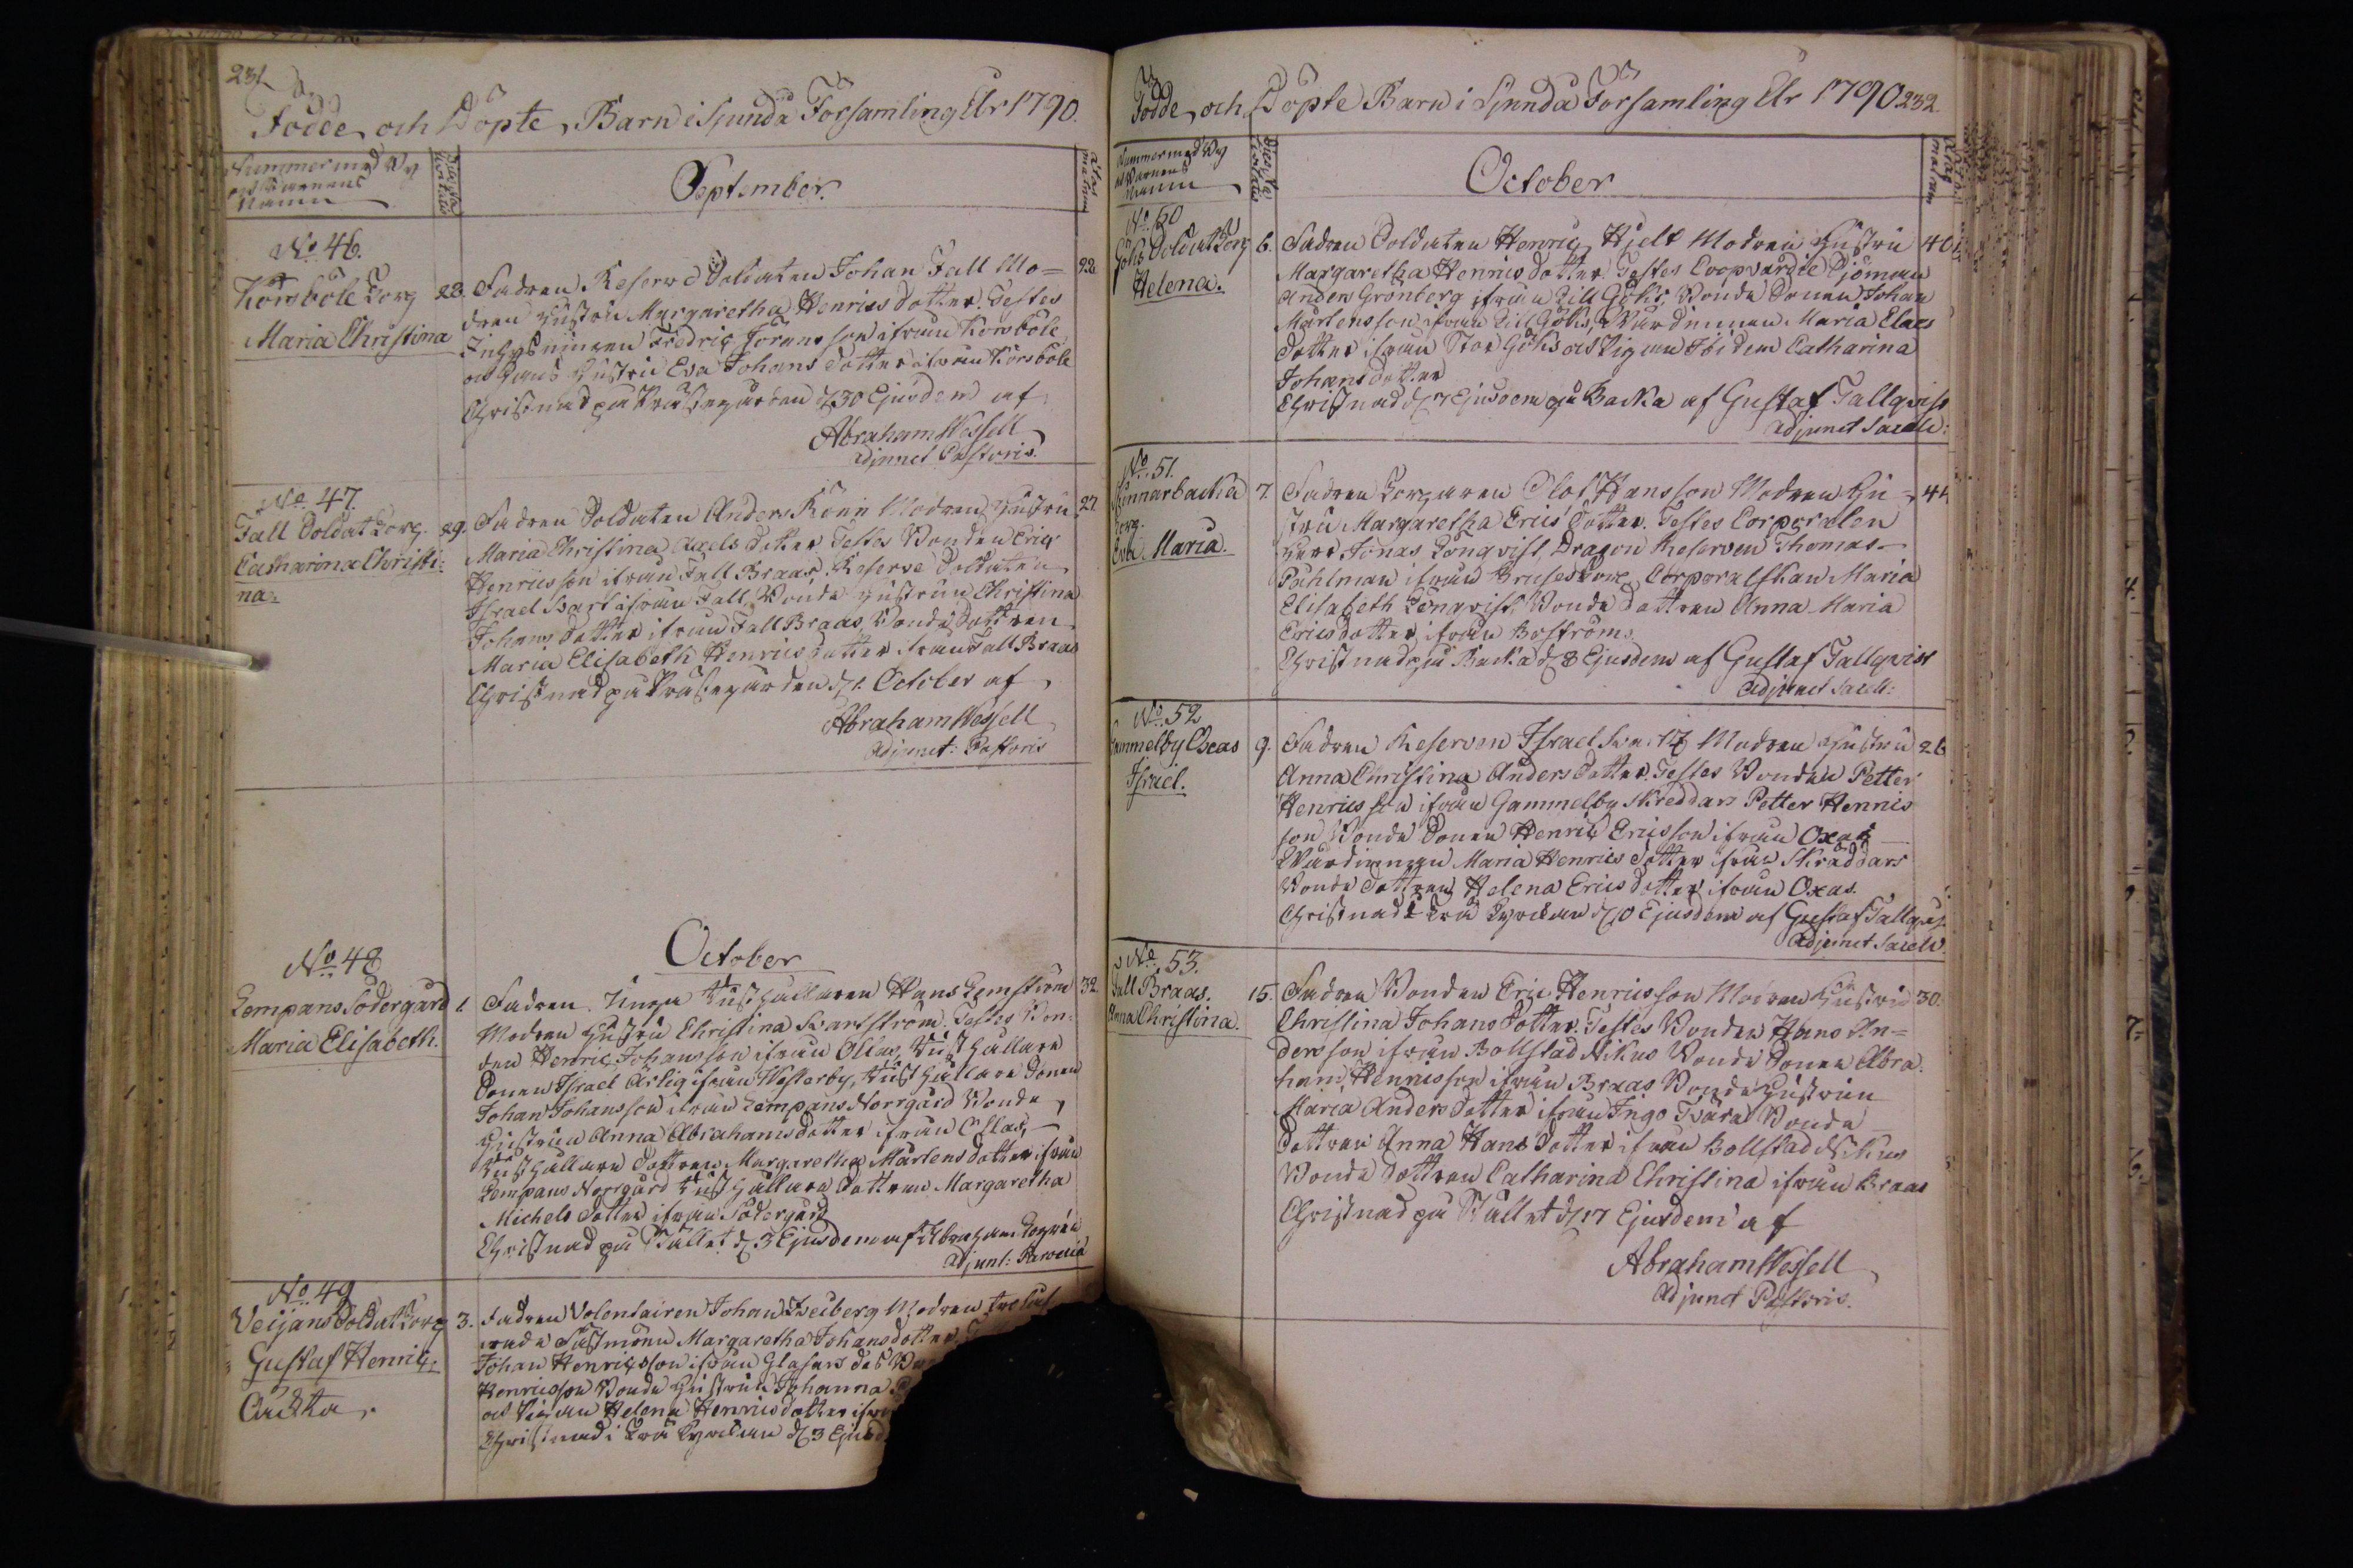 231
Födde och Döpte Barn i Sjundå Församling Åhr 1790.
Nummer med By
och Barnens
Namn
September.
No 46.
Korsböle Torp
Maria Christina
28.
Fadren Reserve Soldaten Johan Fall Mo=
22
dren hustru Margaretha Henrics dotter Testes
Inhysningen Fredric Görans son ifrån Korsböle
och hans hustru Eva Johans dotter ifrån Korsböle
Christnad på Prästegården d 30 Ejusdem af
Abraham Wessell
Adjunct Pastoris.
No 47.
Fall Soldat Torp.
Catharina Christi=
na.
29.
Fadren Soldaten Anders Rönn Modren hustru
27
Maria Christina Axels dotter Testes Bonden Eric
Henricsson ifrån Fall Braas, Reserve Soldaten
Israel Svart ifrån Fall, Bonde hustrun Christina
Johans dotter ifrån Fall Braas, Bonde Dottren
Maria Elisabeth Henricsdotter ifrån Fall Braas
Christnad på Prästegården d 1. October af
Abraham Wessell
Adjunct: Pastoris
October
No 48
Lempans Södergård
Maria Elisabeth.
1.
Fadren Unga Rusthållaren Hans Lemström
32
Modren Hustru Christina Svartström. Testes Bon=
den Henric Johansson ifrån Ollas, Rusthållare
Sonen Israel Ärlig ifrån Westerby, Rusthållare Sonen
Johan Johansson ifrån Lempans Norrgård Bonde
Hustrun Anna Abrahamsdotter ifrån Ollas,
Rusthållare Dottren Margaretha Mårtens dotter ifrån
Lempans Norrgård Rusthållare Dottren Margaretha
Michels dotter ifrån Södergård
Christnad på Stället d 3 Ejusdem af Abraham
Adjunct:
No 49
Veijans Soldat Torp
Gustaf Henric.
3.
Fadren Volentairen Johan Modren
Margaretha Johansdotter.
Johan Henricsson ifrån Glasars
Henricsson Bonde Hustrun Johanna
och Pigan Helena Henricsdotter
Christnad i Kyrckan d 3
Födde och Döpte Barn i Sjundå Församling Åhr 1790
232.
Nummer med By
och Barnens
Namn
October
No 50
Göks Soldat Torp
Helena.
6.
Fadren Soldaten Henric Hjelt Modren Hustru
40
Margaretha Henrics dotter Testes Coopvardie Sjöman
Anders Grönberg ifrån Lill Göks, Bonde Sonen Johan
Mårtensson ifrån Lill Göks, Wärdinnan Maria Claes
dotter ifrån Stor Göks och Pigan Ibidem Catharina
Johans dotter
Christnad d 7 Ejusdem på Backa af Gustaf Tallqvist
Adjunct Sacell:
No 51.
Skinnarbacka
Torp.
Eva Maria.
7.
Fadren Torparen Olof Hansson Modren Hu=
44
stru Margaretha Erics dotter. Testes Corporalen
Herr Jonas Lönqvist, Dragon Reserven Thomas
Påhlman ifrån Bruses Torp, Corporalskan Maria
Elisabeth Lönqvist, Bonde dottren Anna Maria
Ericsdotter ifrån Boströms.
Christnad på Backa d 8 Ejusdem af Gustaf Tallqvist
Adjunct Sacell:
No 52
Gammelby Oxas
Israel.
9.
Fadren Reserven Israel Svart Modren Hustru
26
Anna Christina Anders dotter. Testes Bonden Petter
Henricsson ifrån Gammelby Skreddars Petter Henrics
son Bonde Sonen Henric Ericsson ifrån Oxas
Wärdinnan Maria Henrics dotter ifrån Skräddars
Bonde dottren Helena Erics dotter ifrån Oxas.
Christnad i Kyrckan d 10 Ejusdem af Gustaf Tallqvist
Adjunct Sacell:
No 53.
Fall Braas.
Anna Christina.
15.
Fadren Bonden Eric Henricsson Modren Hustru
30.
Christina Johans dotter. Testes Bonden Hans An=
dersson ifrån Bollstad Nikus Bonde Sonen Abra
ham Henricsson ifrån Braas Bonde Hustrun
Maria Anders dotter ifrån Ingo Tvära Bonde
dottren Anna Hans dotter ifrån Bollstad Nikus
Bonde dottren Catharina Christina ifrån Braas
Christnad på Stället d 17 Ejusdem af
Abraham Wessell
Adjunct Pastoris.